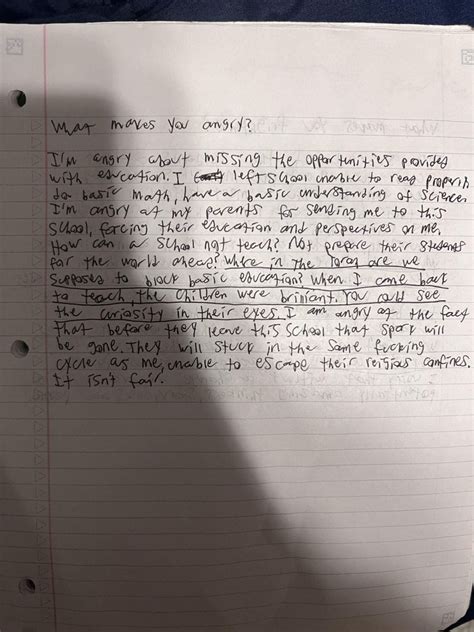 What makes you angry?
I'm angry about missing the opportunities provided
with education. I left school unable to read properly,
do basic math, have a basic understanding of science.
I'm angry at my parents for sending me to this
school, forcing their education and perspectives on me.
How can a school not teach? Not prepare their students
for the world ahead? Where in the Torah are we
supposed to block basic education? When I came back
to teach, the children were brilliant. You could see
the curiosity in their eyes. I am angry at the fact
that before they leave this school that spark will
be gone. They will stuck in the same fucking
cycle as me, unable to escape their reigious confines.
It isn't fair.